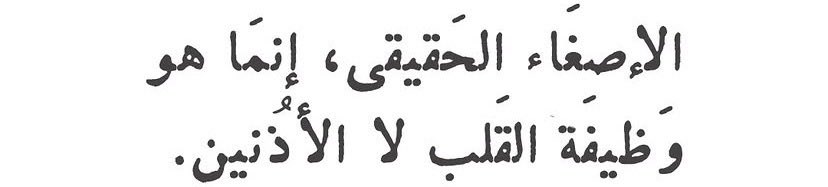 الإصغَاء الحَقيقى، إنمَا هو
وَظيفَة القَلب لا الأُذنين.